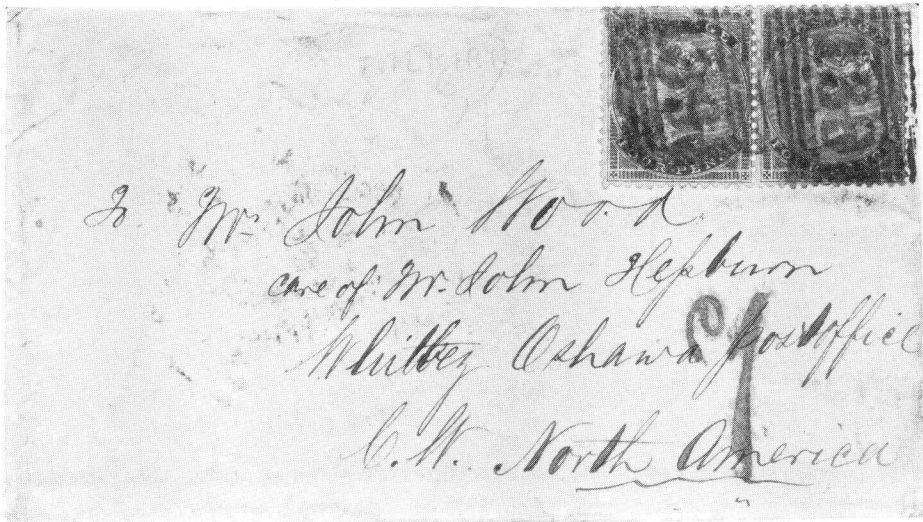 To Mr. John Wood
care of Mr. John Hepburn
Whitbey Oshawa postoffice
C.W. North America